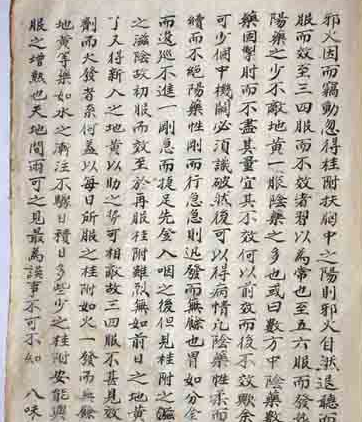 邪火因而竊動忽得桂附扶胸中之陽則邪火自然退聽而
服而效至三四服而不效者習以為常也至五六服而發
陽藥之少不敵地黃一服陰藥之多也或曰數方中陰藥數
藥固掣肘而不盡其量宜其不效何以前效而後不效歟余
可少個中機關必須識破然後可以得病情凡陰藥性柔而
續而不絕陽藥性剛而行急急則迅發而無餘也胃如分金
而逡巡不進一剛急而捷足先登入咽之後但見桂附之溫
之滋陰故初服而效至於再服桂附雖烈無如前日之地黃
了又得新入之地黃以助之勢可相敵故三四服不甚見效
劑而火發者系何蓋以每日所服之桂附如火一發而無餘
地黃等藥如水之濡注不驟日積日多些少之桂附安能與
服之增熱也天地間兩可之見最為誤事不可不知 八味